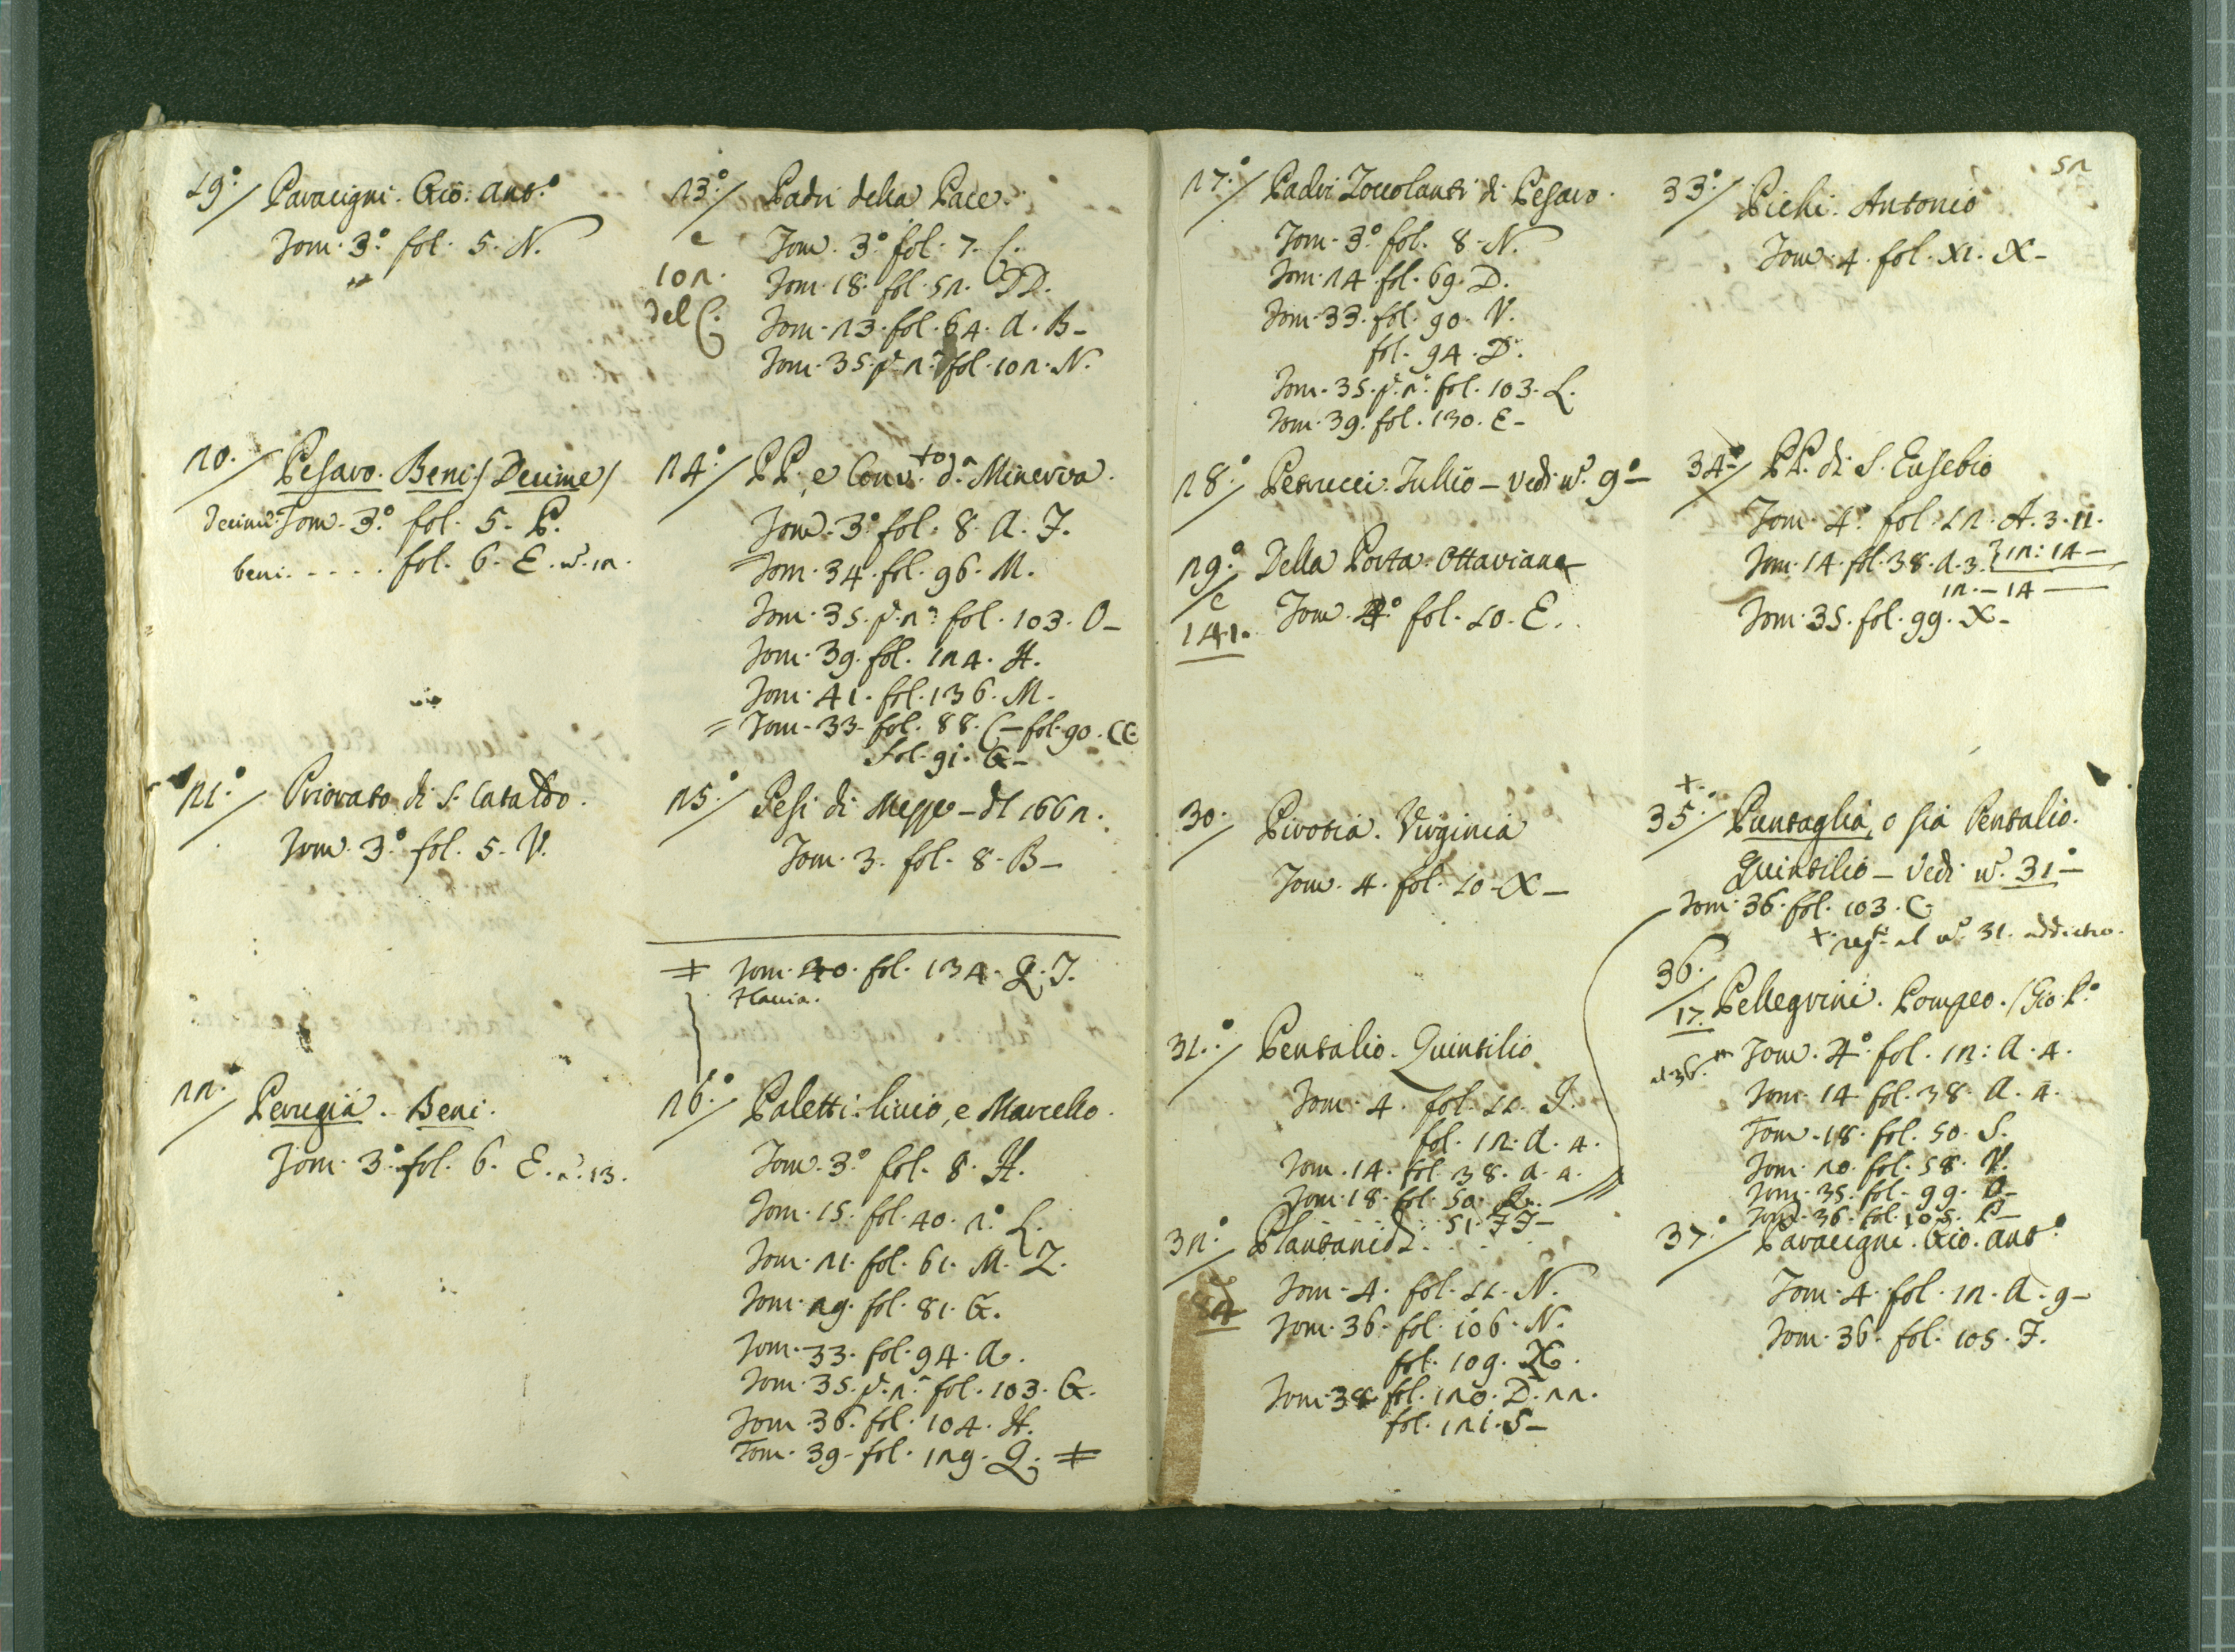 19°/ Paracigni. Gio: Ant.°
Tom. 3.° fol. 5. N.
20./ Pesaro. Beni / Decime /
Decime. Tom. 3.° fol. 5. P.
beni. . . . . fol. 6. E. n.° 12.
21.°/ Priorato di S. Cataldo.
Tom. 3.° fol. 5. V.
22./ Perugia. Beni.
Tom. 3.° fol. 6. E. n.° 13.
23.°/ Padri della Pace.
e Tom. 3.° fol. 7. C.
102. Tom. 18. fol. 52. DD.
del C. Tom. 23. fol. 64. A. B–
Tom. 35. p. 2.ª fol. 102. N.
24.°/ PP. e Conv.to d.ª Minerva.
Tom. 3.° fol. 8. A. F.
Tom. 34. fol. 96. M.
Tom. 35. p. 2.ª fol. 103. O–
Tom. 39. fol. 124. H.
Tom. 41. fol. 136. M.
= Tom. 33. fol. 88. C – fol. 90. CC
fol. 91. G–
25.°/ Pesi di Messe – dl 1662.
Tom. 3. fol. 8. B–
‡ Tom. 40. fol. 134. Q. I.
Flavia.
26.°/ Paletti. Livio, e Marcello.
Tom. 3.° fol. 8. H.
Tom. 15. fol. 40. 2.° L.
Tom. 21. fol. 61. M. Z.
Tom. 29. fol. 81. G.
Tom. 33. fol. 94. A.
Tom. 35. p. 2.ª fol. 103. G.
Tom. 36. fol. 104. H.
Tom. 39. fol. 129. Q. ‡
52
27.°/ Padri Zoccolanti di Pesaro.
Tom. 3.° fol. 8. N.
Tom. 24. fol. 69. D.
Tom. 33. fol. 90. V.
fol. 94. D.
Tom. 35. p. 2.ª fol. 103. L.
Tom. 39. fol. 130. E–
28.°/ Petrucci. Tullio – Vedi n.° 9.°–
29.°/ Della Porta. Ottaviana
e 141. Tom. 4.° fol. 10. E.
30./ Pirotia. Virginia
Tom. 4. fol. 10. X–
31.°/ Pentalio. Quintilio
Tom. 4. fol. 11. I.
fol. 12. A. 4.
Tom. 14. fol. 38. A. 4.
Tom. 18. fol. 50. Q.
51. FF–
32.°/ Plantanid
84 Tom. 4. fol. 11. N.
Tom. 36. fol. 106. N.
fol. 109.
Tom. 38. fol. 120. D. 22.
fol. 121. S–
33.°/ Pichi. Antonio
Tom. 4. fol. XI. X–
34.°/ PP. di S. Eusebio
Tom. 4.° fol. 12. A. 3. 11.
Tom. 14. fol. 38. A. 3. } 12: 14–
12. – 14
Tom. 35. fol. 99. X–
+ 35.°/ Pantaglia, o sia Pentalio.
Quintilio – Vedi n.° 31°–
Tom. 36. fol. 103. C.
+ al n.° 31.
36./ 17. Pellegrini. Pompeo. / Gio. P.°
Tom. 4.° fol. 12: A. 4.
Tom. 14. fol. 38. A. 4.
Tom. 18. fol. 50. S.
Tom. 20. fol. 58. V.
Tom. 35. fol. 99. O–
Tom. 36. fol. 105. P–
37.°/ Paracigni. Gio. Ant.°
Tom. 4. fol. 12. A. 9–
Tom. 36. fol. 105. F.